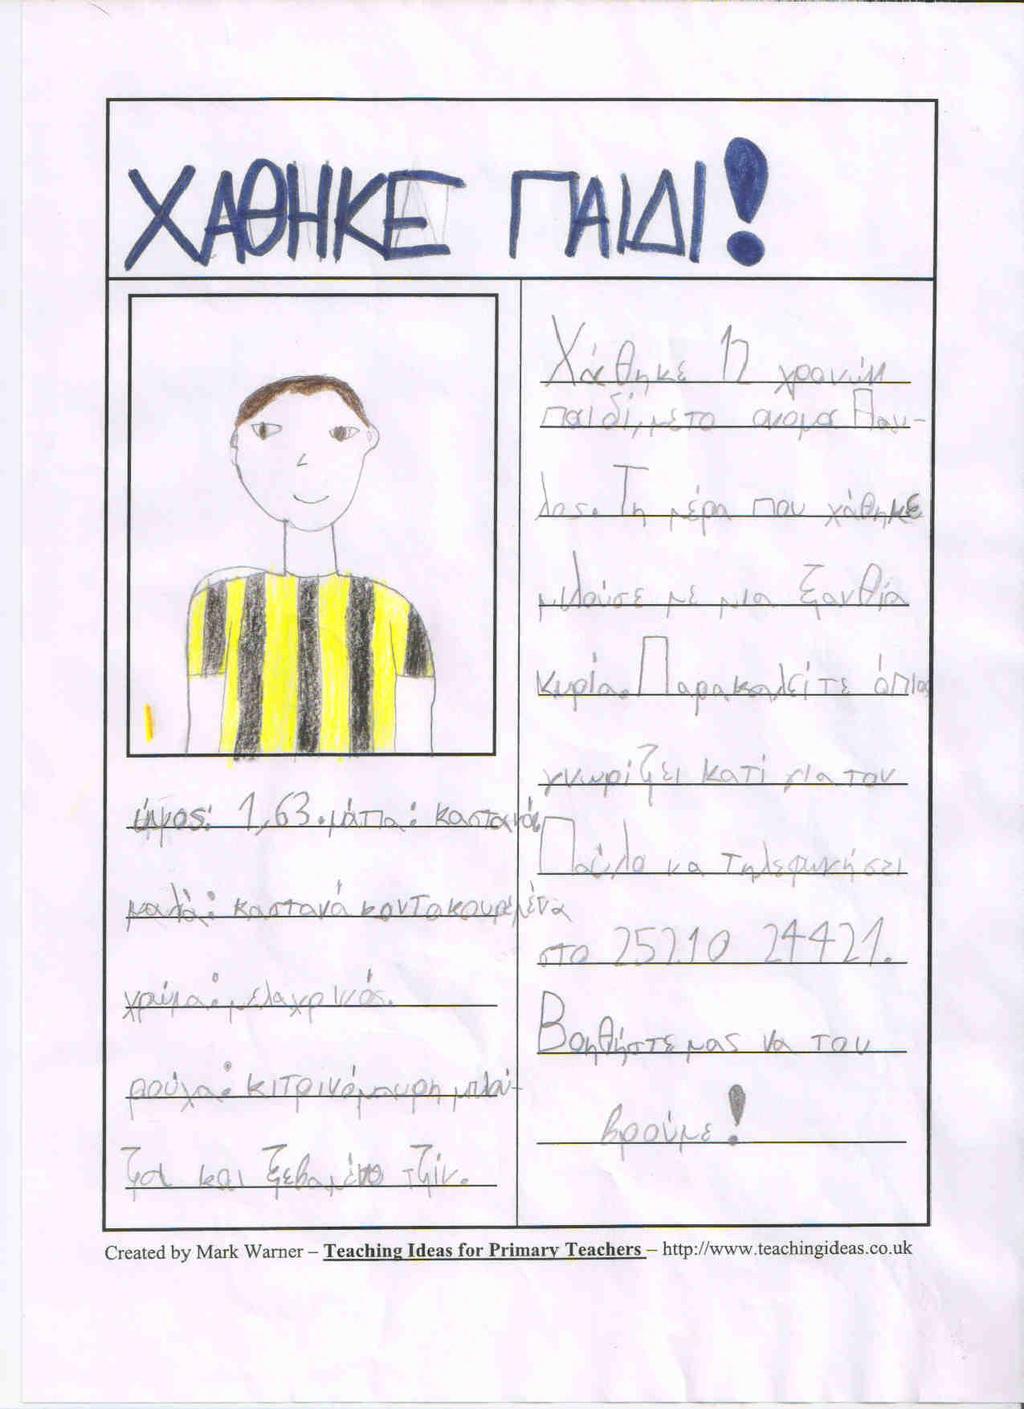 ΧΑΘΗΚΕ ΠΑΙΔΙ!
ύψος: 1,63. μάτια: καστανά,
μαλλά: καστανά κοντοκουρεμένα
χρώμα: μελαχρινός.
ρούχα: κιτρινόμαυρη μπλού-
ζα και ξεβαμένο τζίν.
Χάθηκε 12 χρονών
παιδί, με το ονομα Παυ-
λος. Τη μέρα που χάθηκε
μιλούσε με μια ξανθιά
κυρία. Παρακαλείτε όπιος
γνωρίζει κατί για τον
Παύλο να τηλεφωνήσει
στο 25210 24421.
Βοηθήστε μας να τον
βρούμε!
Created by Mark Warner – Teaching Ideas for Primary Teachers – http://www.teachingideas.co.uk